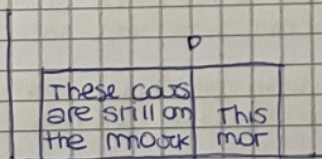 These cars
are still on
the
This
mor